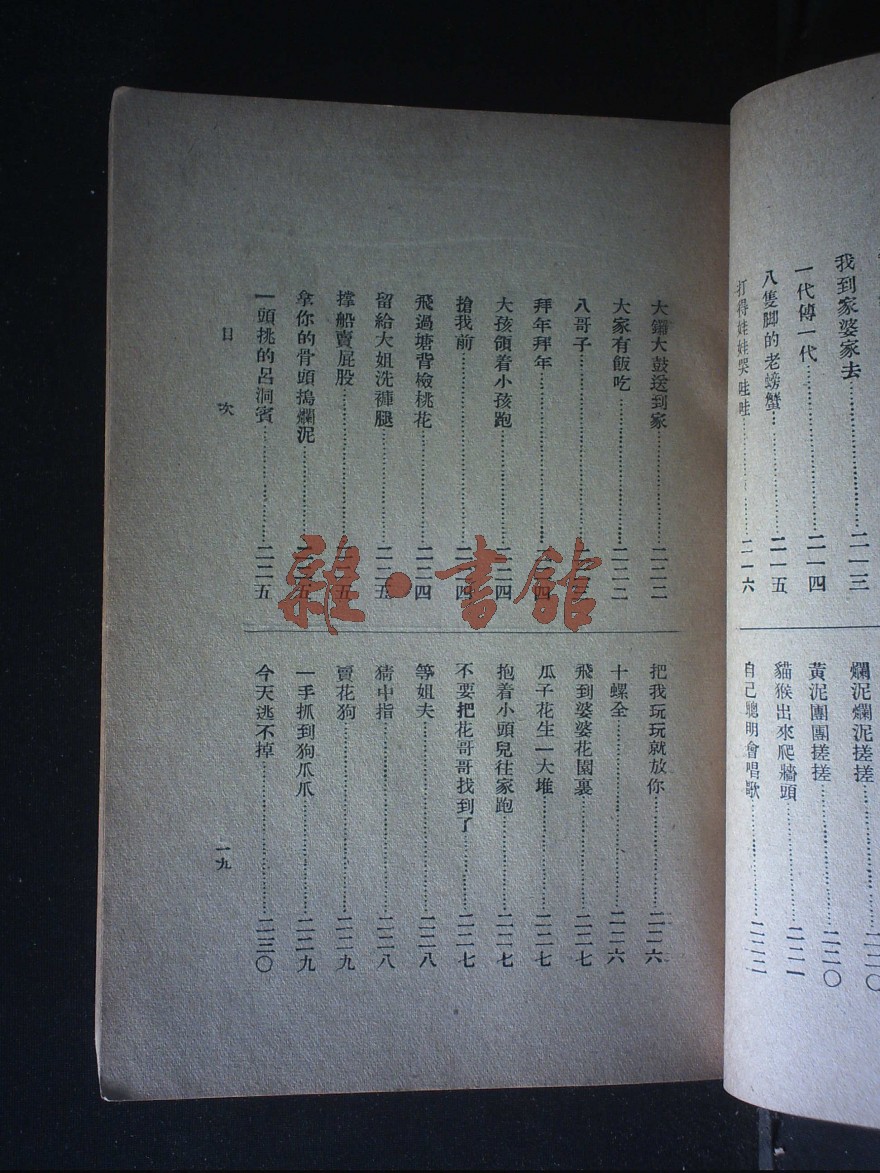 我到家婆家去……二一三
一代傳一代……二一四
八隻脚的老螃蟹……二一五
打得娃娃哭哇哇……二一六
爛泥爛泥搓搓……二二〇
黃泥團團搓搓……二二〇
貓猴出來爬牆頭……二二一
自己聰明會唱歌……二二二
大鑼大鼓送到家……二二二
大家有飯吃……二二二
八哥子……二二三
拜年拜年……二二四
大孩領着小孩跑……二二四
搶我前……二二四
飛過塘背檢桃花……二二四
留給大姐洗褲腿……二二五
撑船賣屁股……二二五
拿你的骨頭搗爛泥……二二五
一頭挑的呂洞賓……二二五
把我玩玩就放你……二二六
十螺全……二二六
飛到婆婆花園裏……二二七
瓜子花生一大堆……二二七
抱着小頭兒往家跑……二二七
不要把花哥哥找到了……二二七
等姐夫……二二八
猜中指……二二八
賣花狗……二二九
一手抓到狗爪爪……二二九
今天逃不掉……二三〇
目次
一九
雜·書館